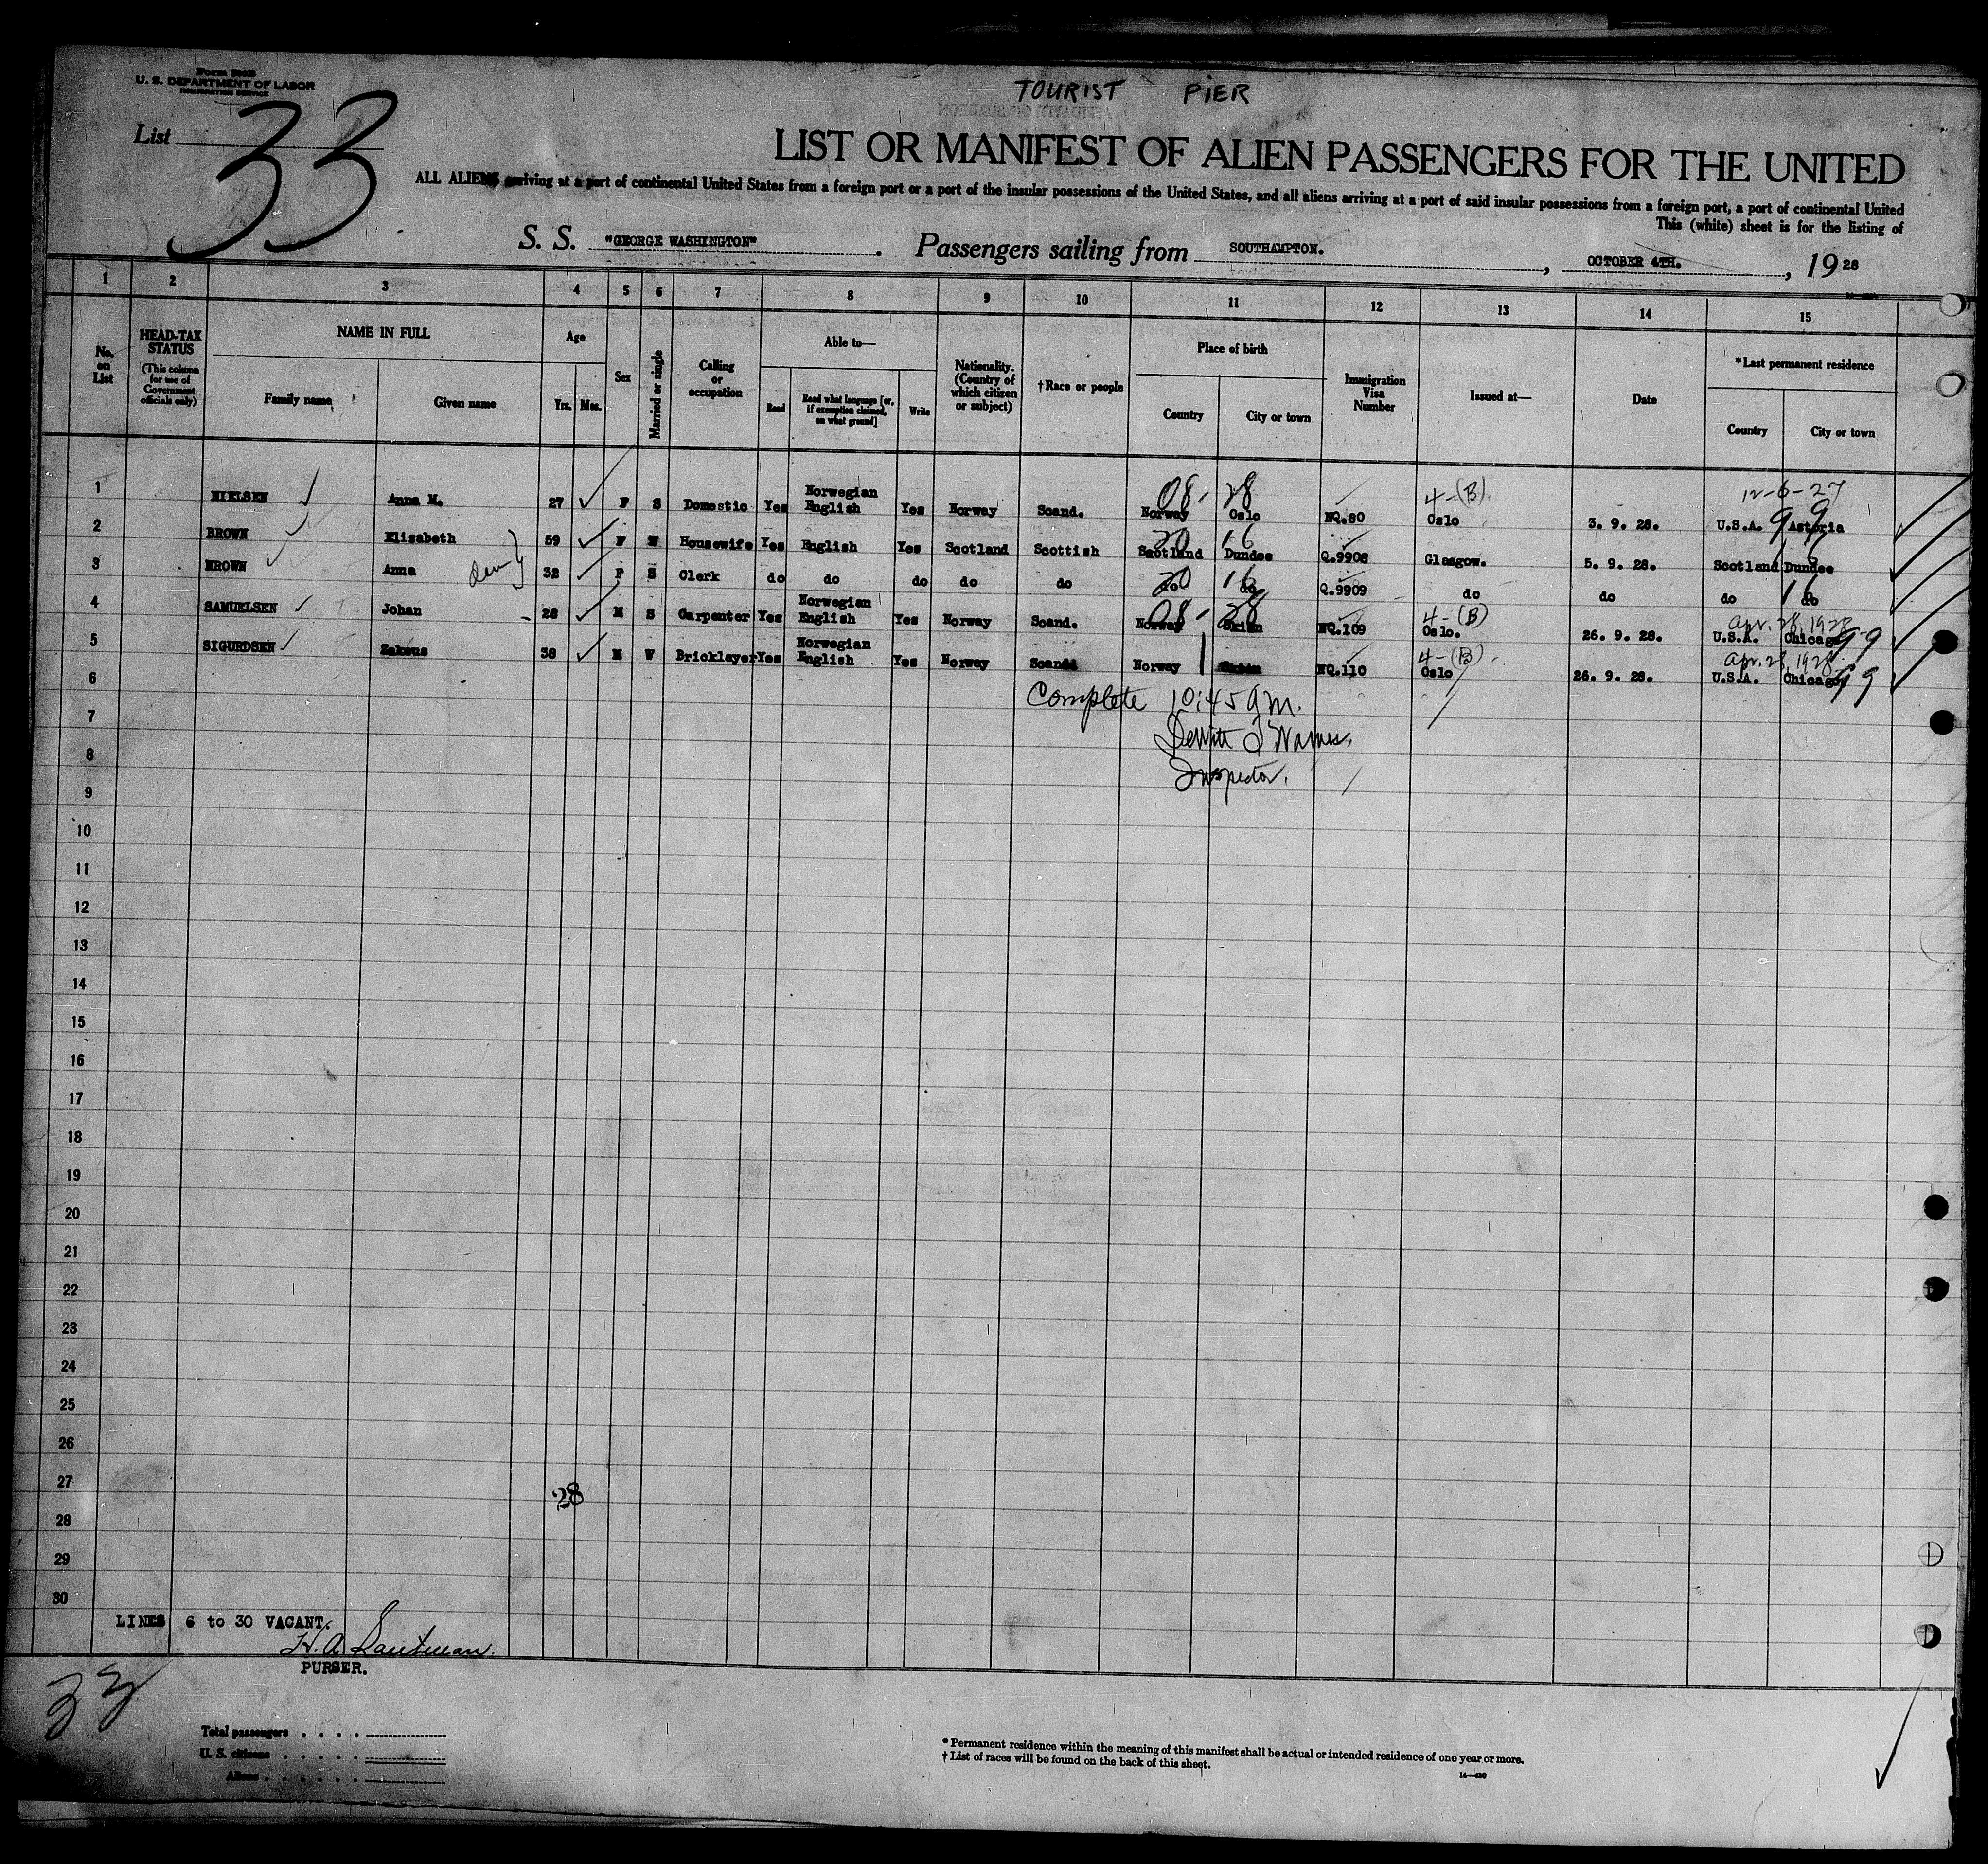 TOURIST PIER
Form 500B
U. S. DEPARTMENT OF LABOR
IMMIGRATION SERVICE
List 33
LIST OR MANIFEST OF ALIEN PASSENGERS FOR THE UNITED
ALL ALIENS arriving at a port of continental United States from a foreign port or a port of the insular possessions of the United States, and all aliens arriving at a port of said insular possessions from a foreign port, a port of continental United
This (white) sheet is for the listing of
S. S. "GEORGE WASHINGTON". Passengers sailing from SOUTHAMPTON., OCTOBER 4TH., 19 28
1 2 3 4 5 6 7 8 9 10 11 12 13 14 15
No. on List
HEAD-TAX STATUS
(This column for use of Government officials only)
NAME IN FULL
Family name Given name
Age
Yrs. Mos.
Sex
Married or single
Calling or occupation
Able to—
Read
Read what language [or, if exemption claimed, on what ground]
Write
Nationality. (Country of which citizen or subject)
†Race or people
Place of birth
Country City or town
Immigration Visa Number
Issued at—
Date
*Last permanent residence
Country City or town
08- 28 4-(B). 12-6-27
1 NIELSEN Anna M. 27 F S Domestic Yes Norwegian English Yes Norway Scand. Norway Oslo NQ.80 Oslo 3. 9. 28. U.S.A. Astoria 99
20 16
2 BROWN Elizabeth 59 F Housewife Yes English Yes Scotland Scottish Scotland Dundee Q.9908 Glasgow. 5. 9. 28. Scotland Dundee
20 16
3 BROWN Anna 32 F S Clerk do do do do do do do Q.9909 do do do do 16
08- 28 4-(B) Apr. 28, 1928
4 SAMUELSEN Johan 28 M S Carpenter Yes Norwegian English Yes Norway Scand. Norway Skien NQ.109 Oslo. 26. 9. 28. U.S.A. Chicago 99
4-(B). Apr. 28, 1928
5 SIGURDSEN Zakeus 38 M W Bricklayer Yes Norwegian English Yes Norway Scand Norway NQ.110 Oslo 26. 9. 28. U.S.A. Chicago 99
6
Complete 10:45 am.
7
8
Inspector.
9
10
11
12
13
14
15
16
17
18
19
20
21
22
23
24
25
26
27
28
28
29
30
LINES 6 to 30 VACANT.
PURSER.
33
Total passengers
U. S. citizens
Aliens
* Permanent residence within the meaning of this manifest shall be actual or intended residence of one year or more.
† List of races will be found on the back of this sheet.
14—430